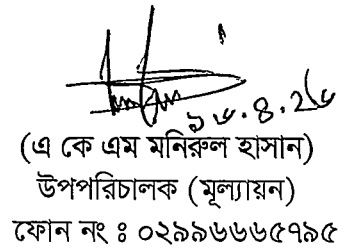 (এ কে এম মনিরুল হাসান)
উপপরিচালক (মূল্যায়ন)
ফোন নং ঃ ০২৯৯৬৬৬৫৭৯৫